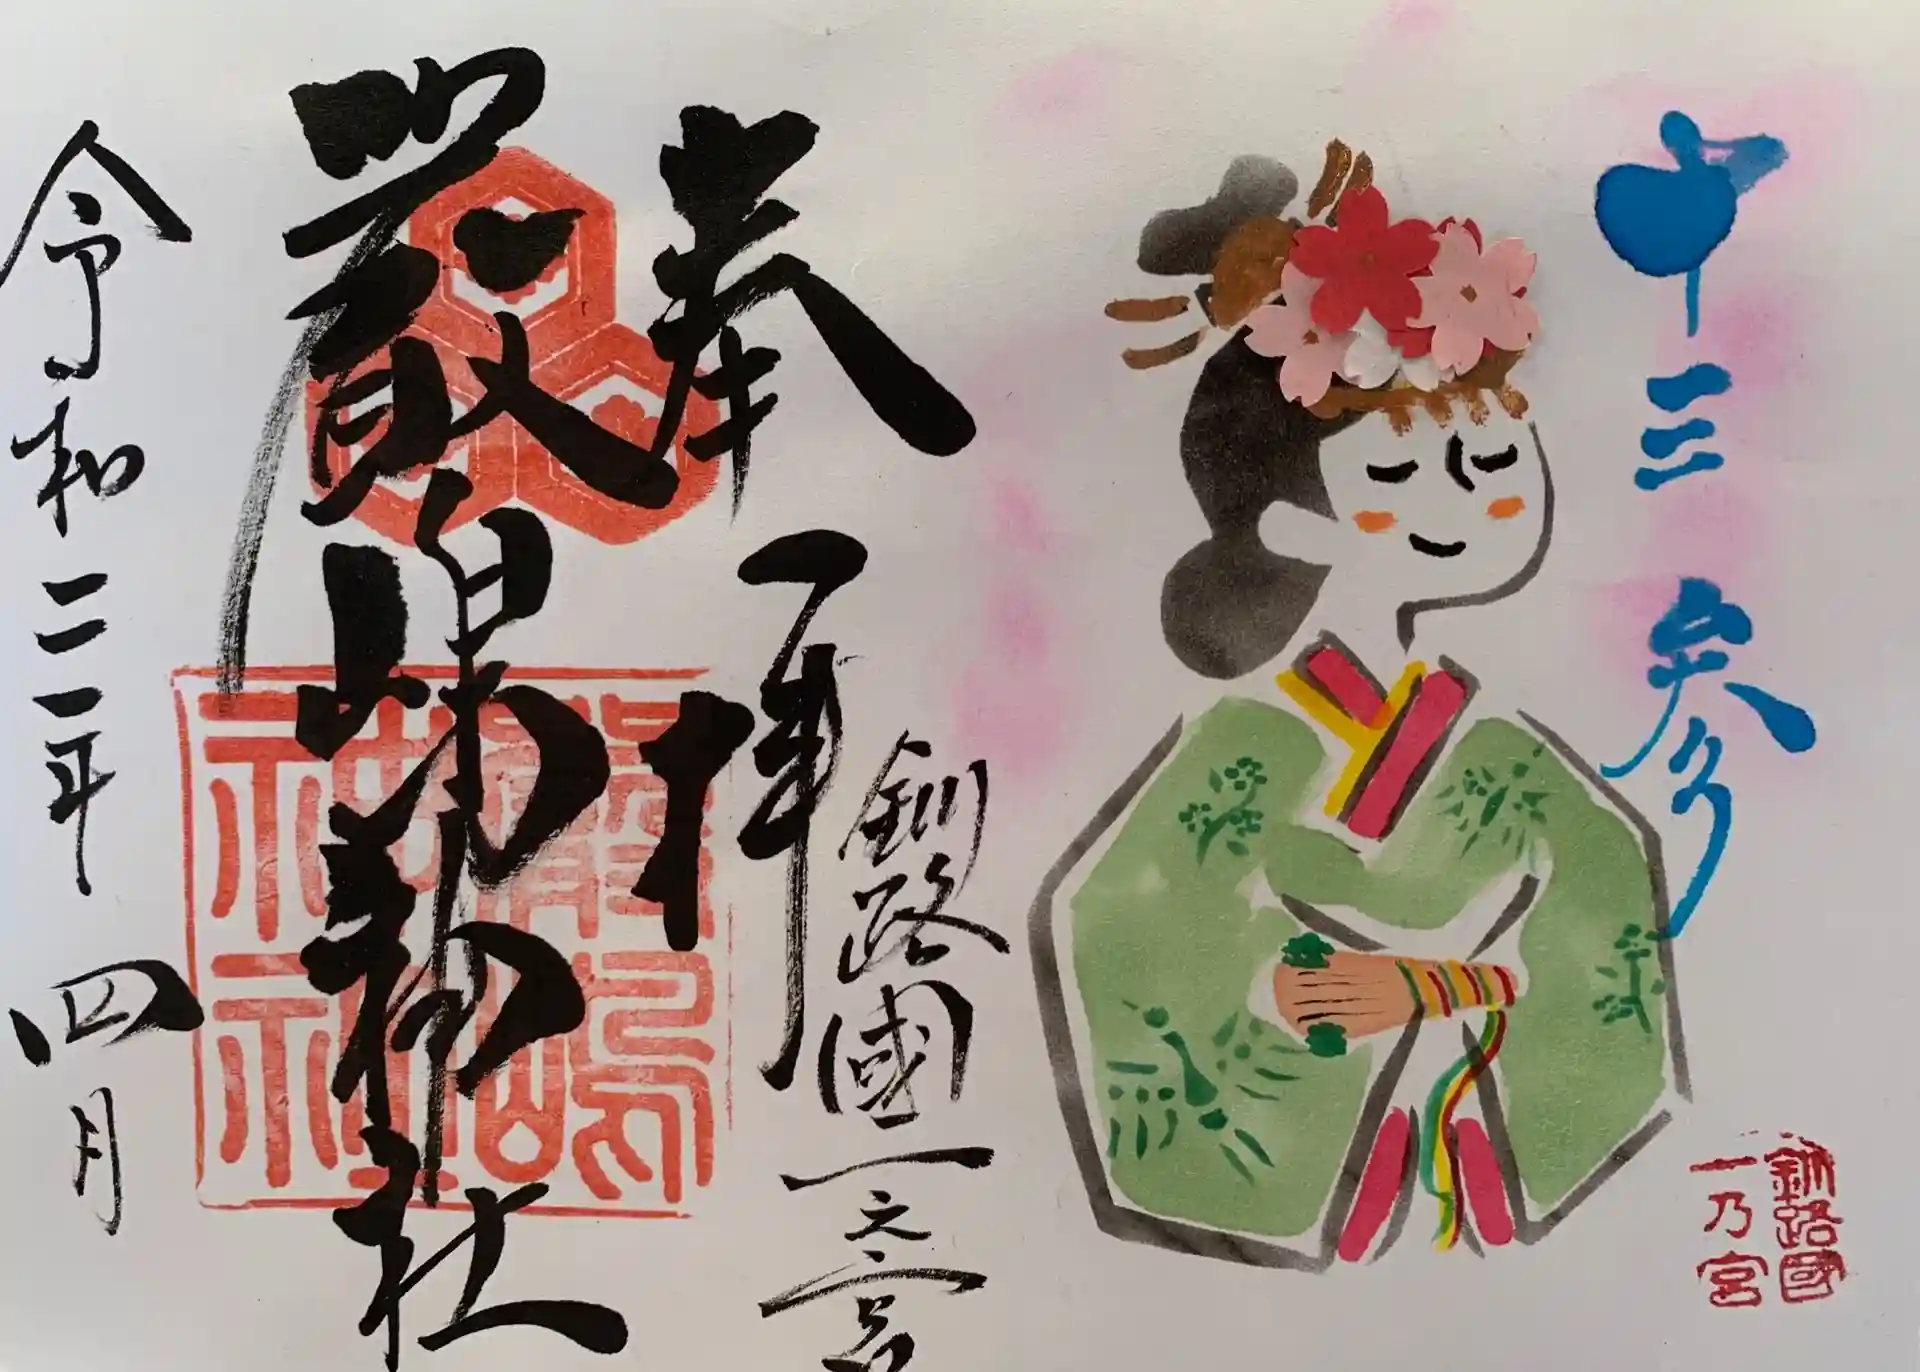 十三参り
釧路國
一乃宮
奉拝
釧路國一之宮
厳島神社
厳嶋
神社
令和二年
四月